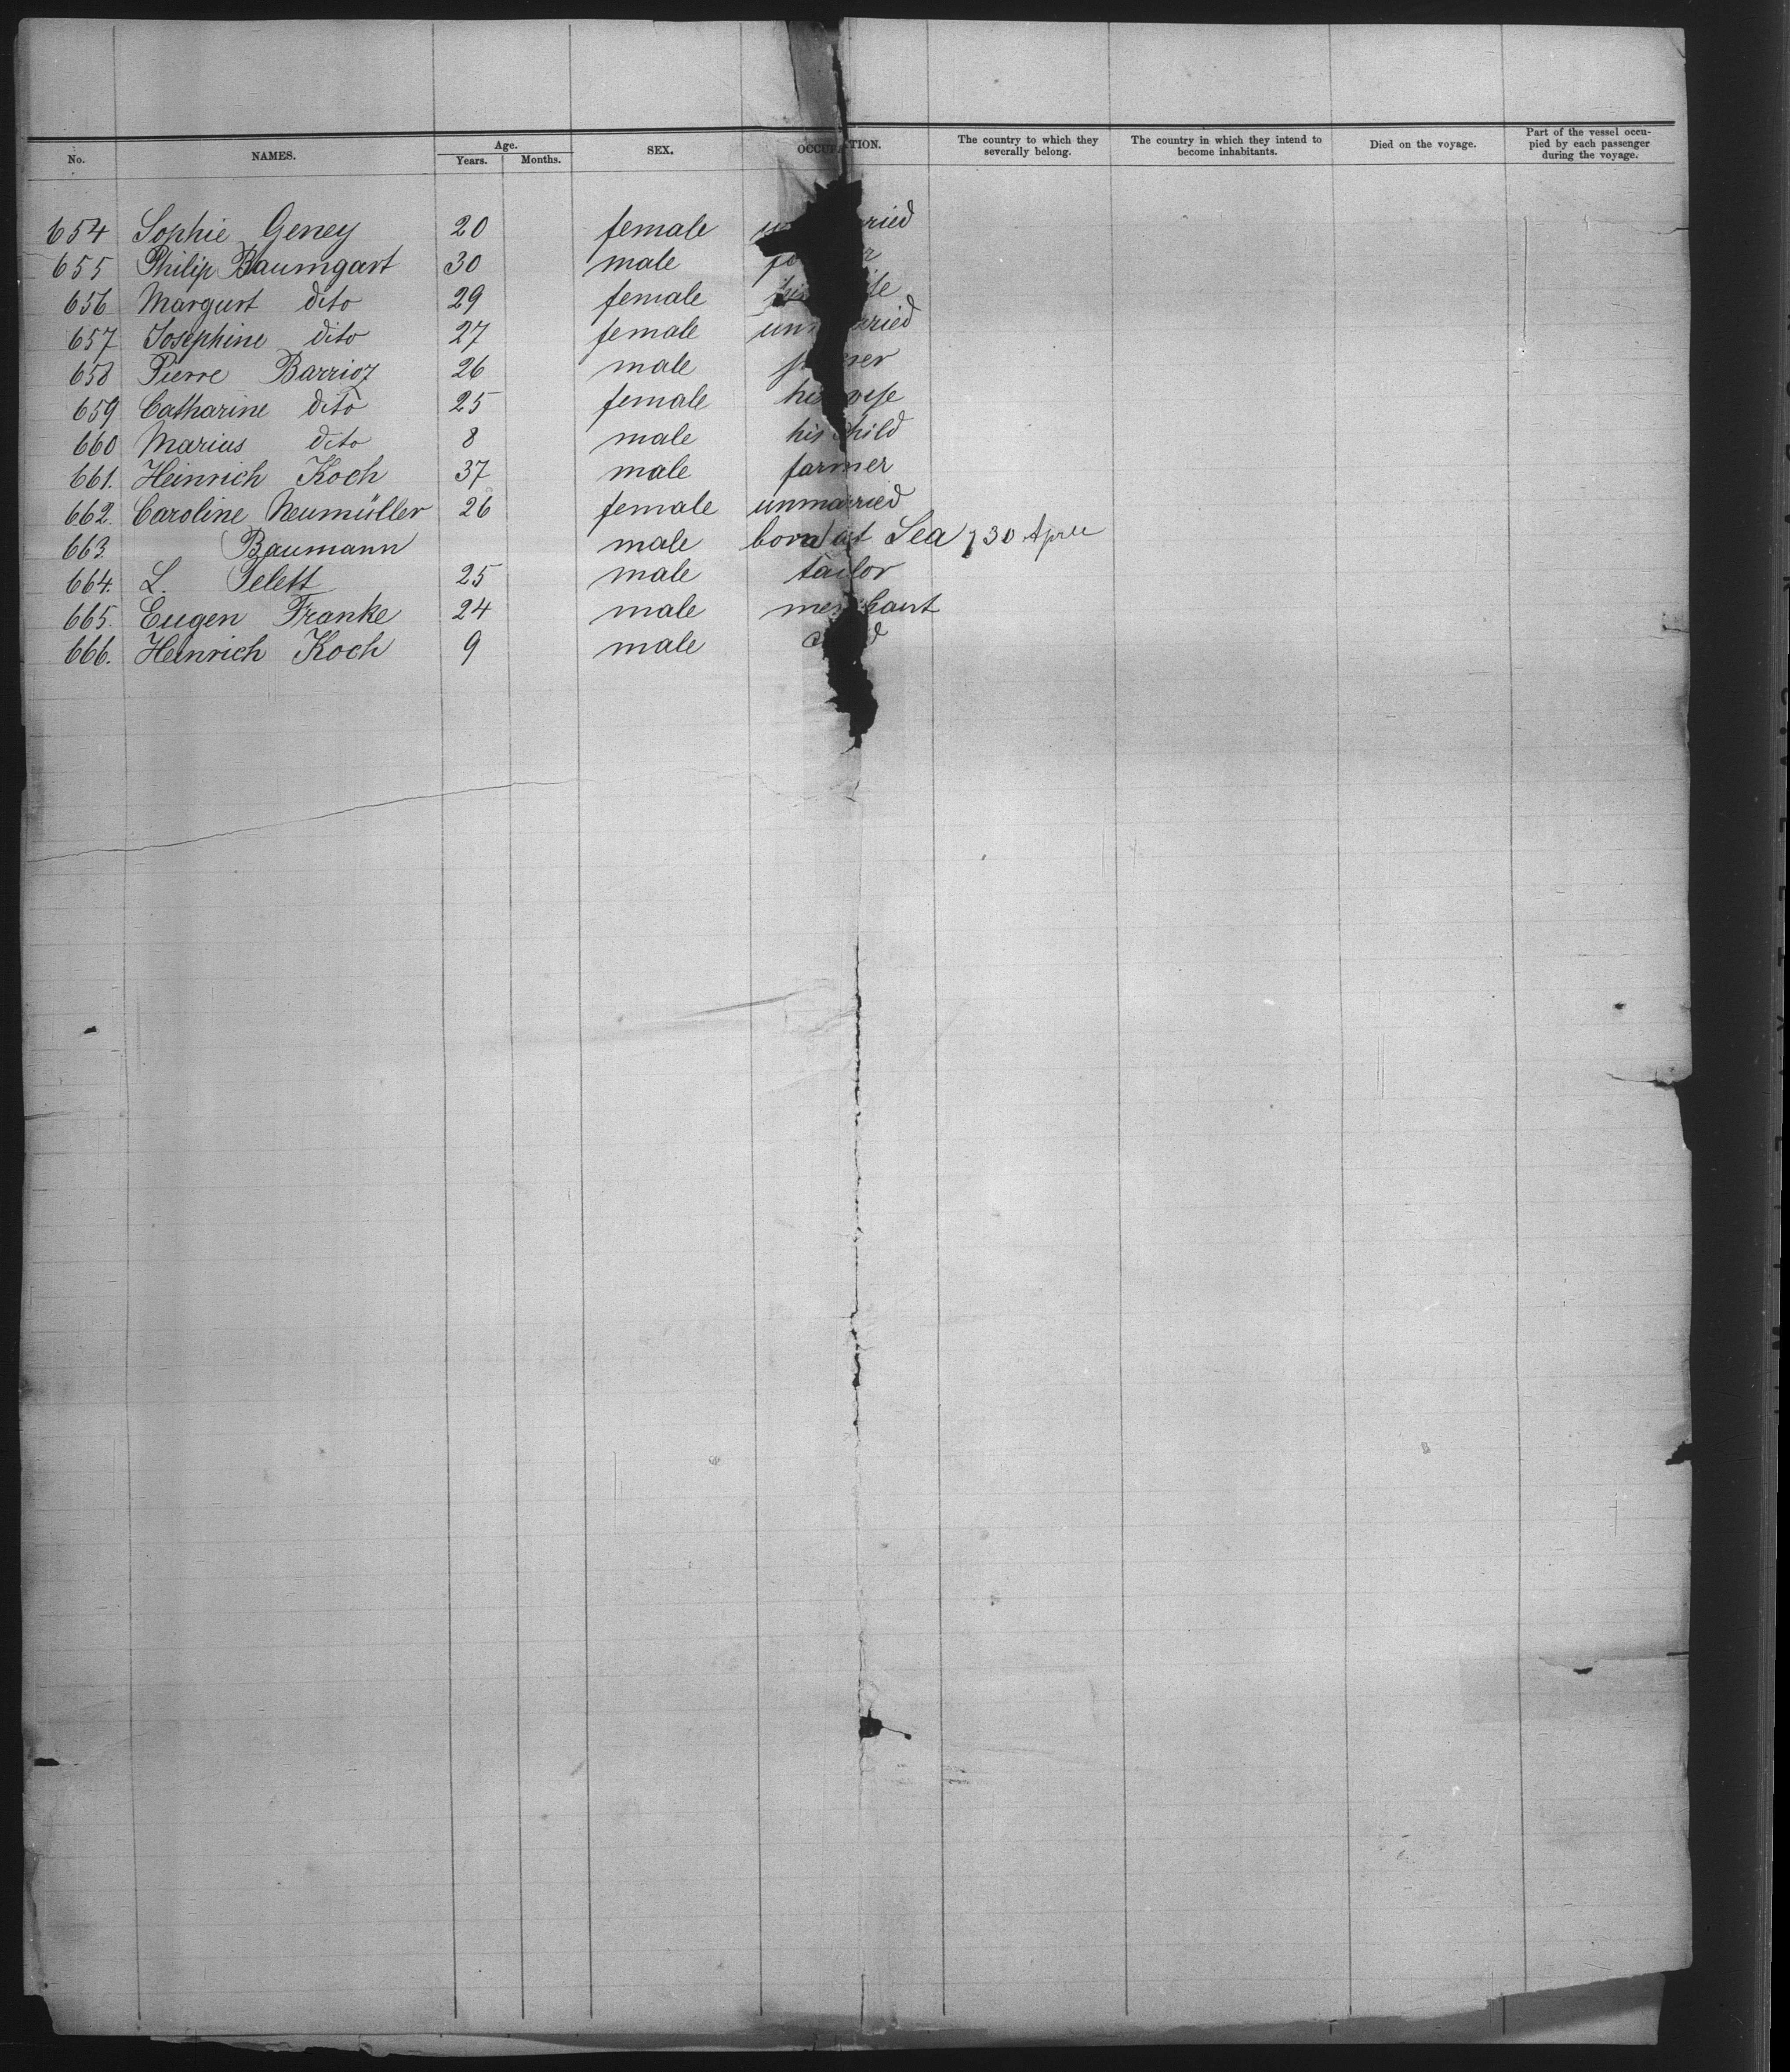 No. NAMES. Age. Years. Months. SEX. OCCUPATION. The country to which they severally belong. The country in which they intend to become inhabitants. Died on the voyage. Part of the vessel occupied by each passenger during the voyage.
654 Sophie Geney 20 female
655 Philip Baumgart 30 male
656 Margurt dito 29 female
657 Josephine dito 27 female unmarried
658 Pierre Barrioz 26 male
659 Catharine dito 25 female his wife
660 Marius dito 8 male his child
661. Heinrich Koch 37 male farmer
662. Caroline Neumüller 26 female unmarried
663. Baumann male born at Sea 30 April
664. L. Pelett 25 male tailor
665. Eugen Franke 24 male merchant
666. Heinrich Koch 9 male